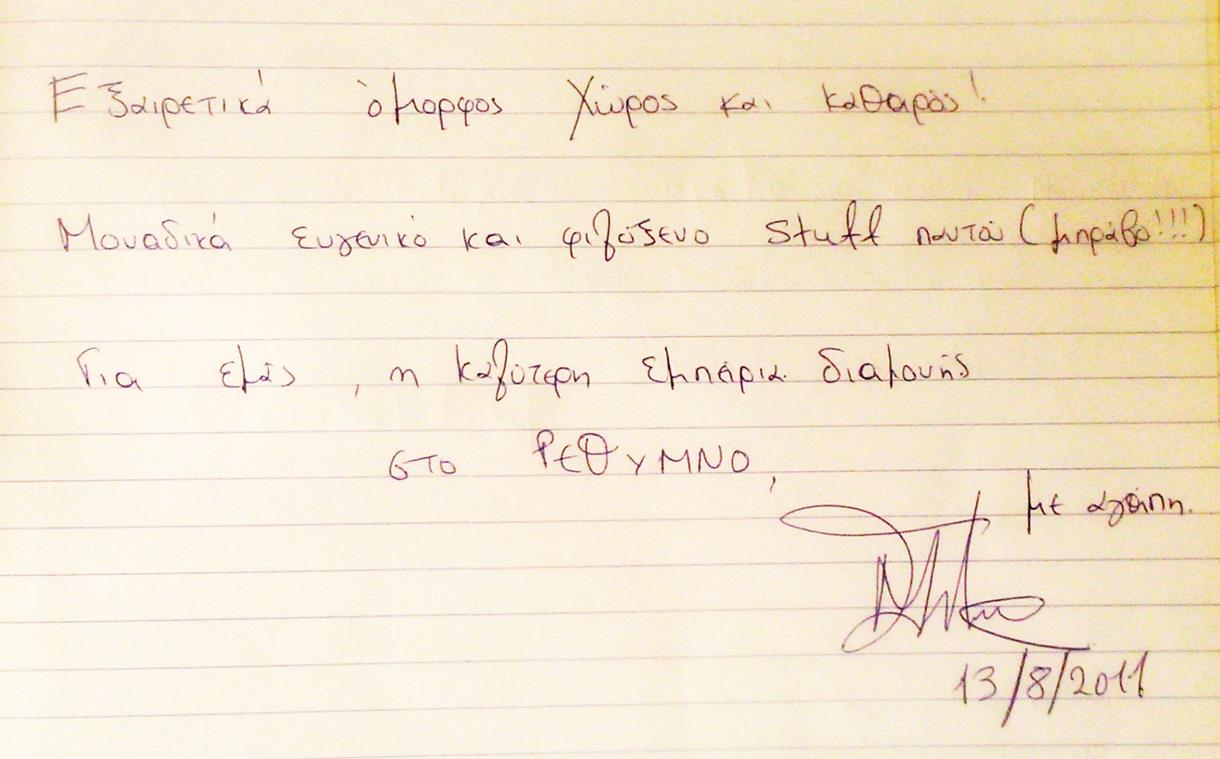 Εξαιρετικά όμορφος χώρος και καθαρός!
Μοναδικά ευγενικό και φιλόξενο stuff παντού (μπράβο!!!)
Για εμάς, η καλύτερη εμπηρια διαμονής
στο ΡΕΘΥΜΝΟ,
με αγάπη.
13/8/2011